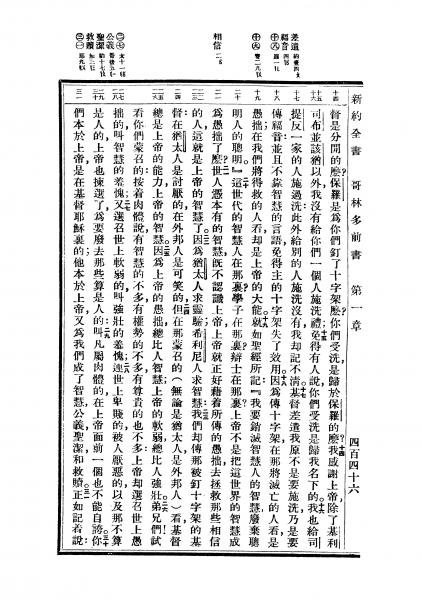 新約全書 哥林多前書 第一章 四百四十六
差遣
福音
相信
公義
聖潔
救贖
督是分開的麼?保羅是為你們釘了十字架麼?你們受洗是歸於保羅的麼?我感謝上帝除了基利
司布並該猶以外我沒有給你們一個人施洗禮免得有人說你們受洗是歸我名下的我也給司
提反一家的人施過洗此外給別的人施洗沒有我却記不清基督差遣我原不是要施洗乃是要
傳福音並且不靠智慧的言語免得主的十字架失了効用因為傳十字架在那將滅亡的人看是
愚拙在我們將得救的人看却是上帝的大能就如聖經所記『我要銷滅智慧人的智慧廢棄聰
明人的聰明』這世代的智慧人在那裏學子在那裏辯士在那裏上帝不是把這世界的智慧成
為愚拙了麼世人憑本有的智慧既不認識上帝上帝就正好藉着所傳的愚拙去拯救那些相信
的人這就是上帝的智慧了因為猶太人求靈驗希利尼人求智慧我們却傳那被釘十字架的基
督在猶太人是討厭的在外邦人是可笑的但在那蒙召的(無論是猶太人是外邦人)看基督
總是上帝的能力上帝的智慧因為上帝的愚拙總比人智慧上帝的軟弱總比人強壯弟兄們試
看你們蒙召的按着肉體說有智慧的不多有權勢的不多有尊貴的也不多上帝却選召世上愚
拙的叫智慧的羞愧又選召世上軟弱的叫強壯的羞愧連世上卑賤的被人厭惡的以及那不算
是人的上帝也揀選了為要廢去那些算是人的叫凡屬肉體的在上帝面前一個也不能自誇你
們本於上帝是在基督耶穌裏的他本於上帝又為我們成了智慧公義聖潔和救贖正如記着說